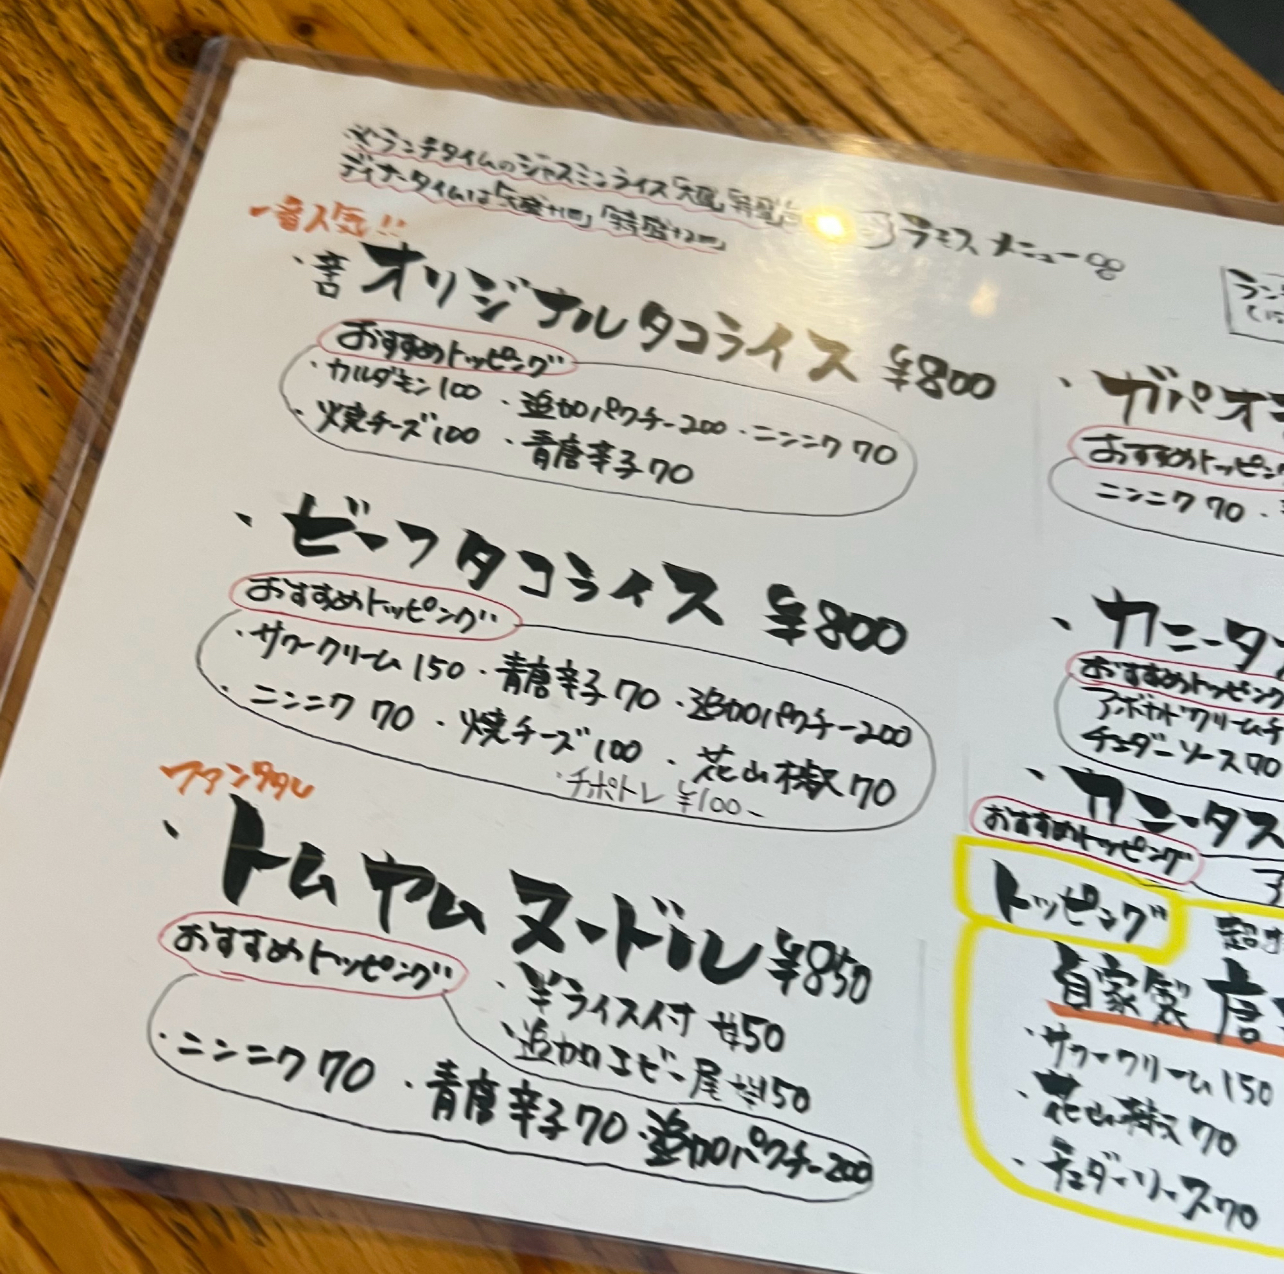 ※ランチタイムのジャスミンライス「大盛」「特盛」
ディナータイムは「大盛+1m」「特盛+2m」
ラモス メニュー
一番人気!!
・辛口 オリジナルタコライス ¥800
おすすめトッピング
・カルダモン100 ・追加パクチー200 ・ニンニク70
・焼チーズ100 ・青唐辛子70
・ビーフタコライス ¥800
おすすめトッピング
・サワークリーム150 ・青唐辛子70 ・追加パクチー200
・ニンニク70 ・焼チーズ100 ・花山椒70
・チポトレ ¥100-
・トムヤムヌードル ¥850
おすすめトッピング
・半ライス付 ¥50
・追加エビ一尾 ¥150
・ニンニク70 ・青唐辛子70 ・追加パクチー200
ラン
・ガパオ
おすすめトッピン
ニンニク70 ・
・カニータ
おすすめトッピング
アボカドクリームチ
チェダーソース70
・カニータス
おすすめトッピング
トッピング
自家製 唐
・サワークリーム150
・花山椒70
・チェダーソース70